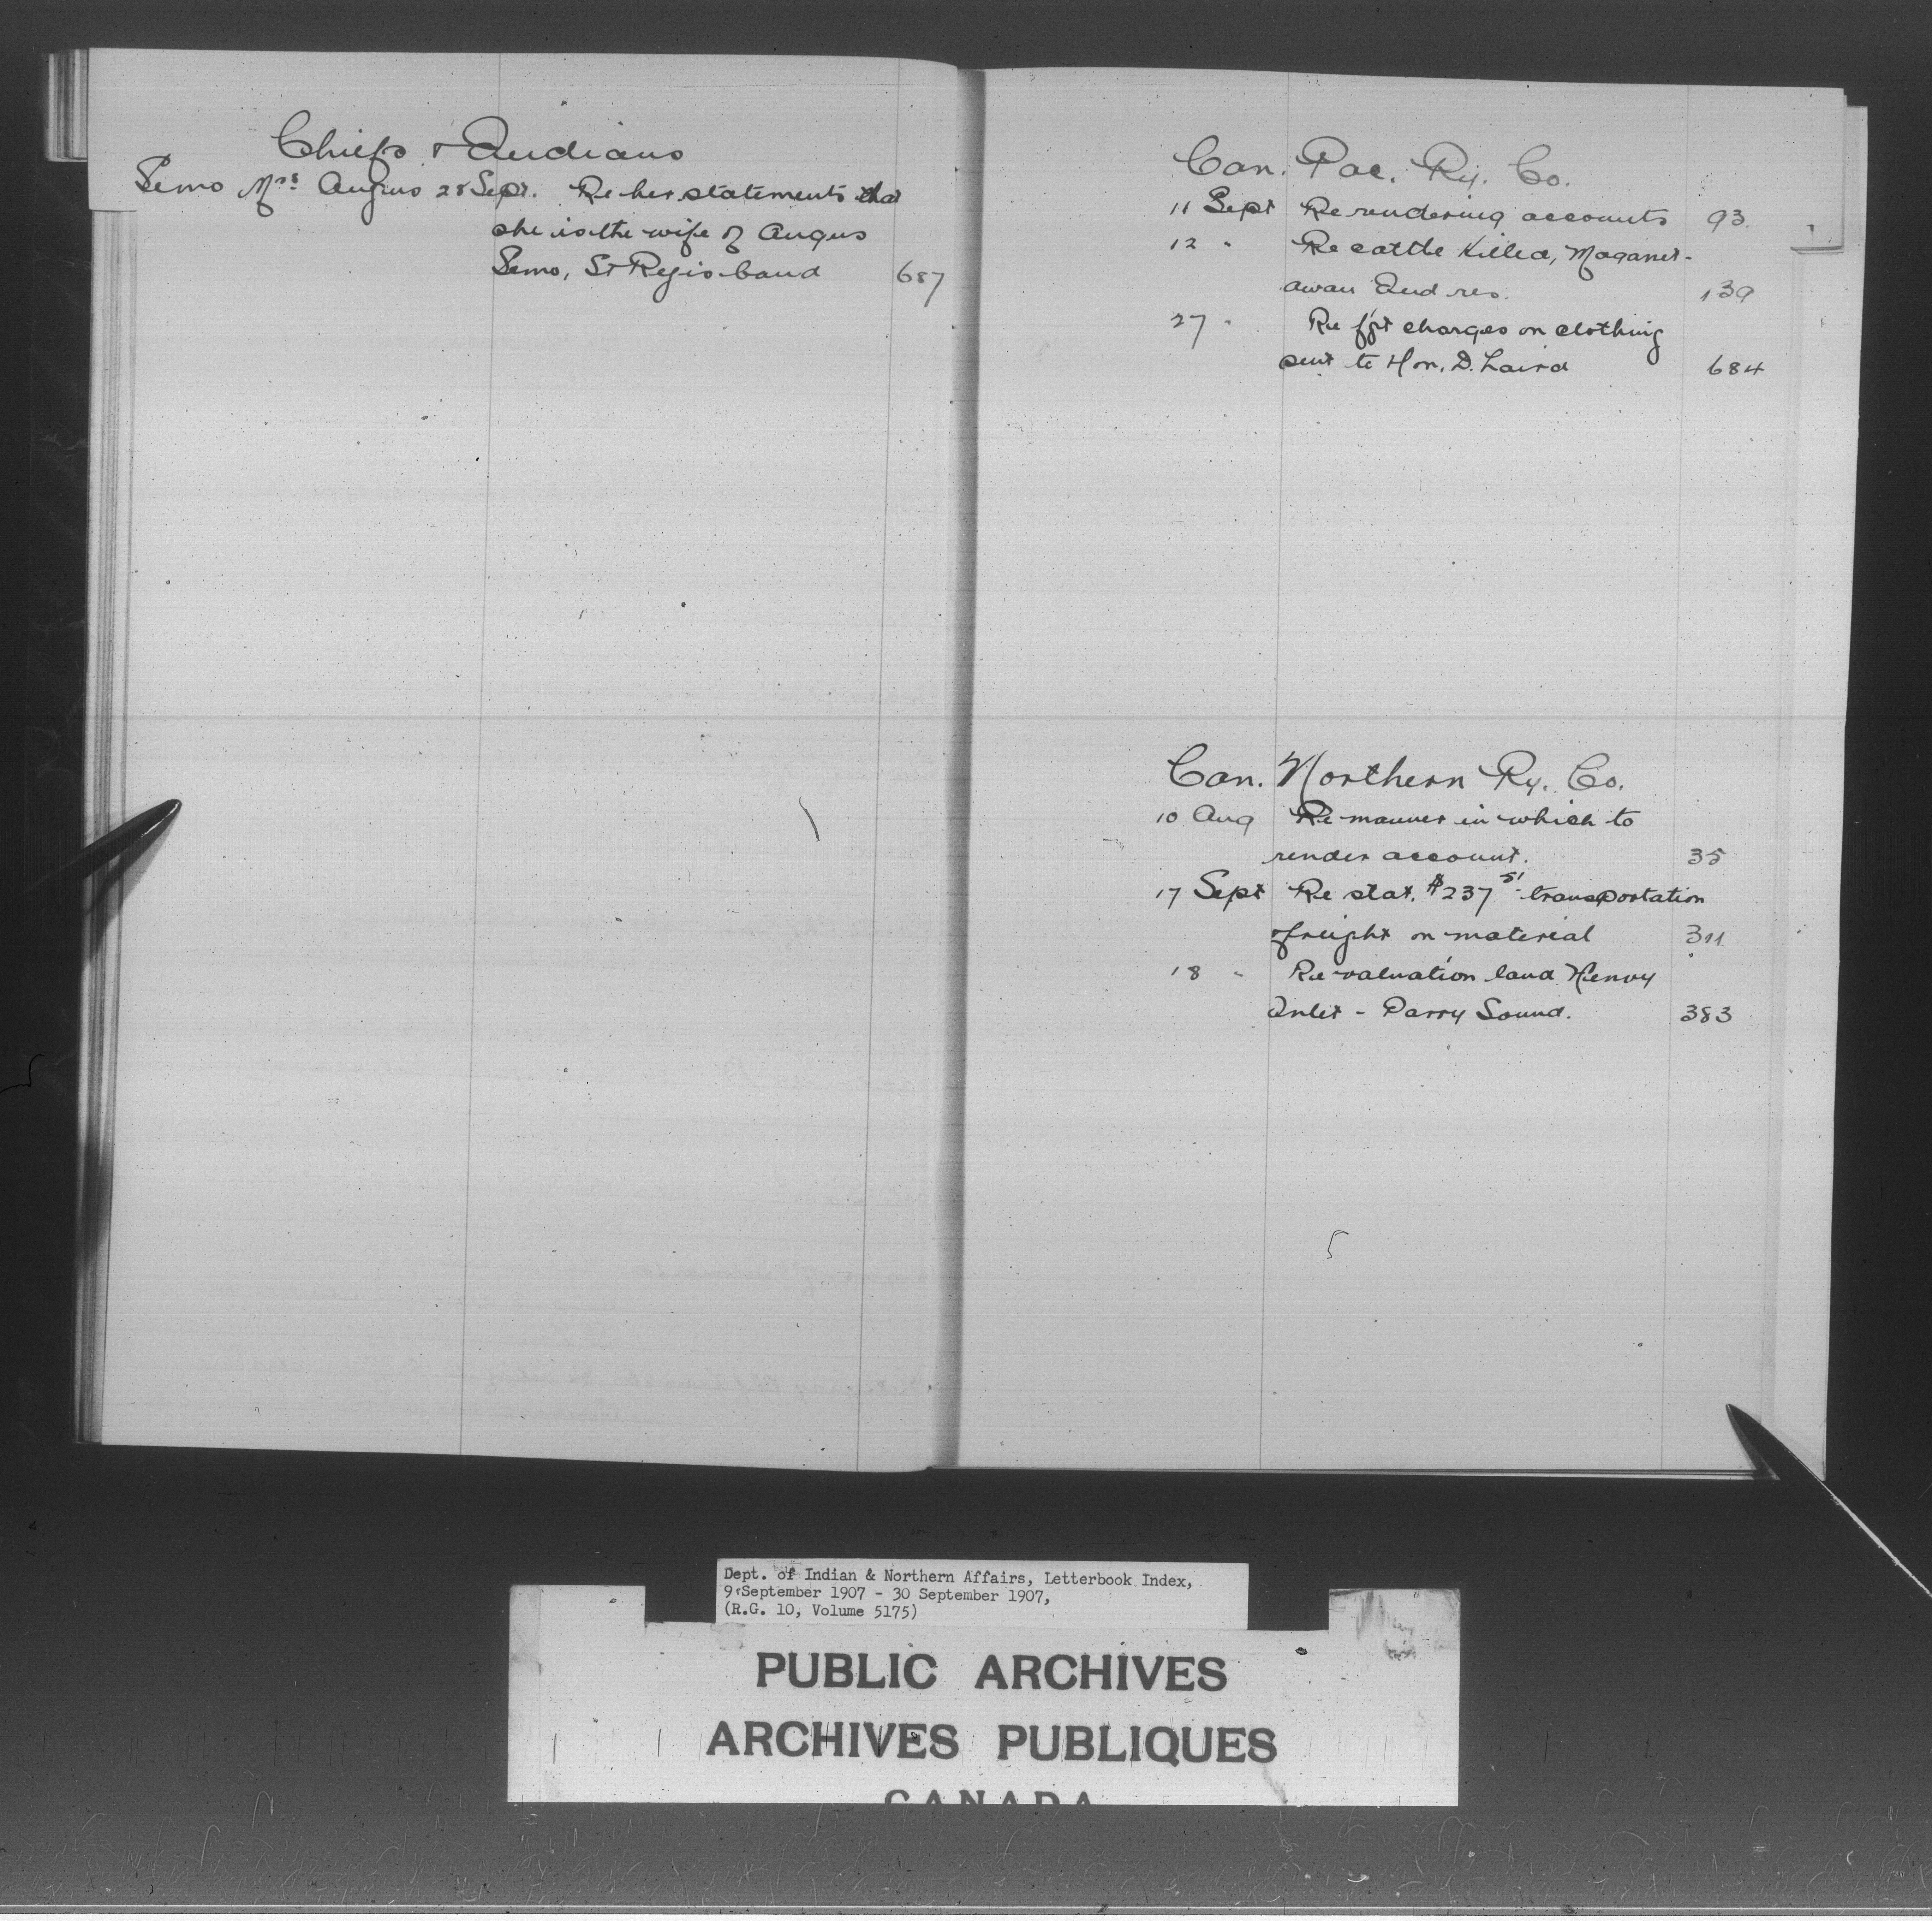 Chiefs & Indians
Semo Mrs Angus 28 Sept. Re her statements that
she is the wife of Angus
Semo, St Regis band 687
Can. Pac. Ry. Co.
11 Sept Re rendering accounts 93
12 " Re cattle killed, Maganet-
awan Ind res. 139
27 " Re fgt charges on clothing
sent to Hon. D. Laird 684
Can. Northern Ry. Co.
10 Aug Re manner in which to
render account. 35
17 Sept Re stat. $237 51 transportation
freight on material 311
18 " Re valuation land Henvy
Inlet - Parry Sound. 383
Dept. of Indian & Northern Affairs, Letterbook Index,
9 September 1907 - 30 September 1907,
(R.G. 10, Volume 5175)
PUBLIC ARCHIVES
ARCHIVES PUBLIQUES
CANADA